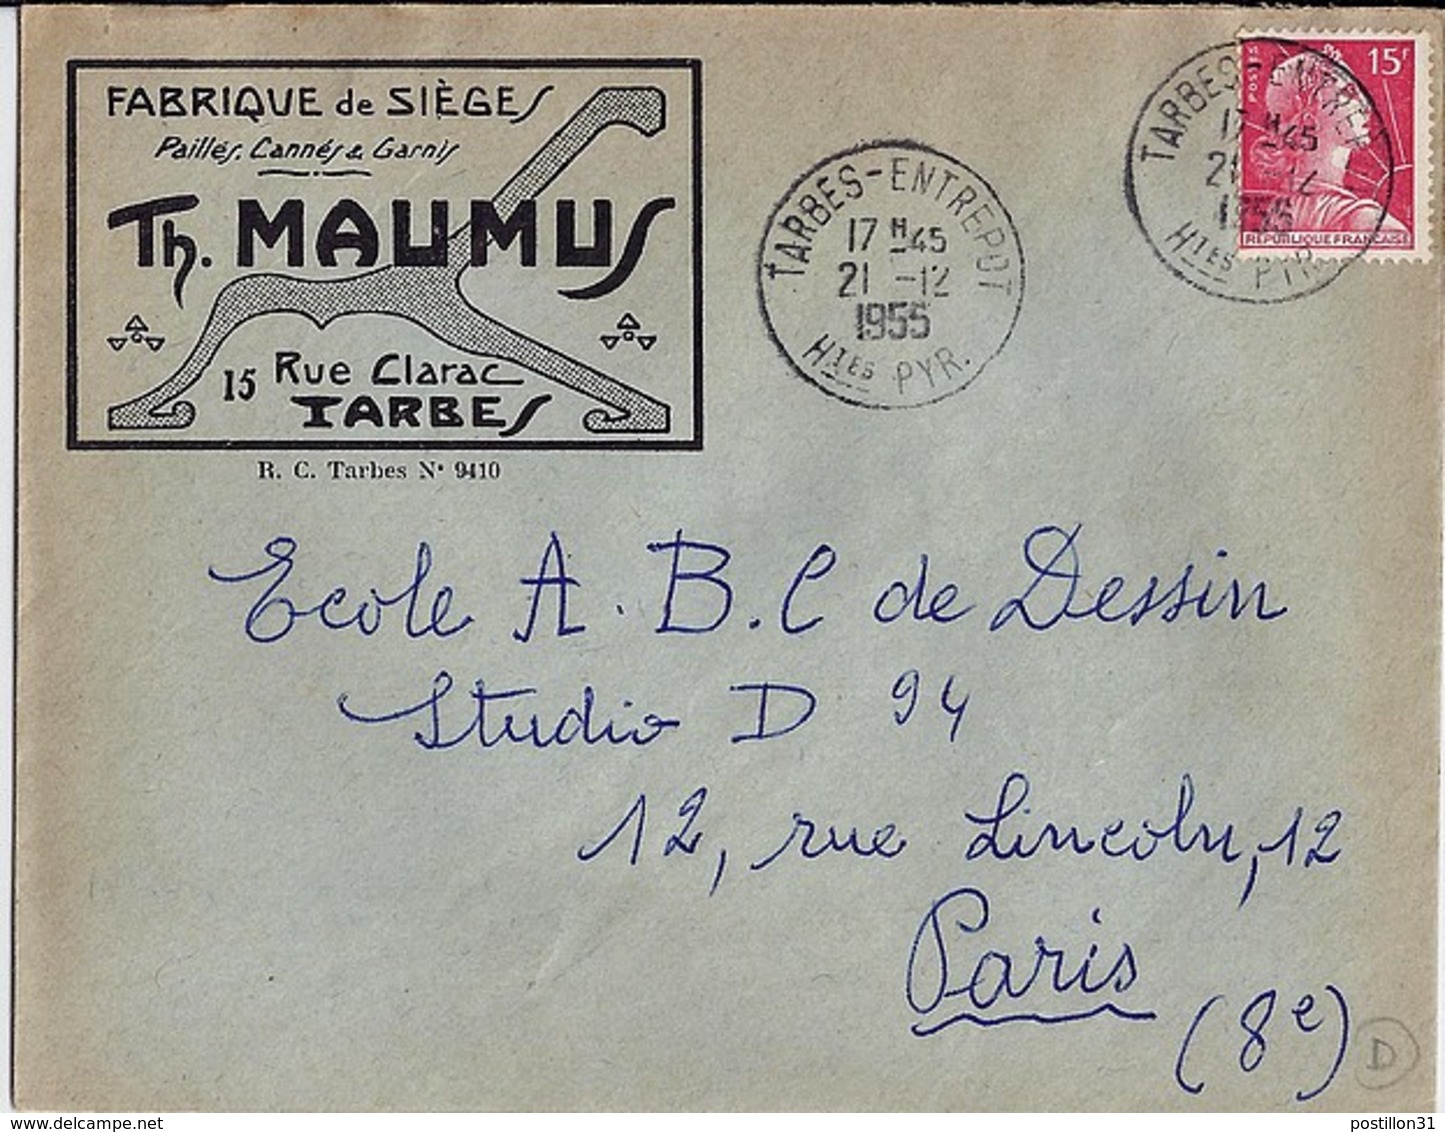 FABRIQUE de SIÈGES
Paillés, Cannés & Garnis
Th. MAUMUS
15 Rue Clarac
TARBES
R. C. Tarbes N° 9410
TARBES-ENTREPOT
17 H 45
21 -12
1955
HTES PYR.
TARBES-ENTREPOT
17 H 45
21 -12
1955
HTES PYR.
POSTES
15F
REPUBLIQUE FRANCAISE
Ecole A.B.C de Dessin
Studio D 94
12, rue Lincoln, 12
Paris
(8e)
D
delcampe.net
postillon31